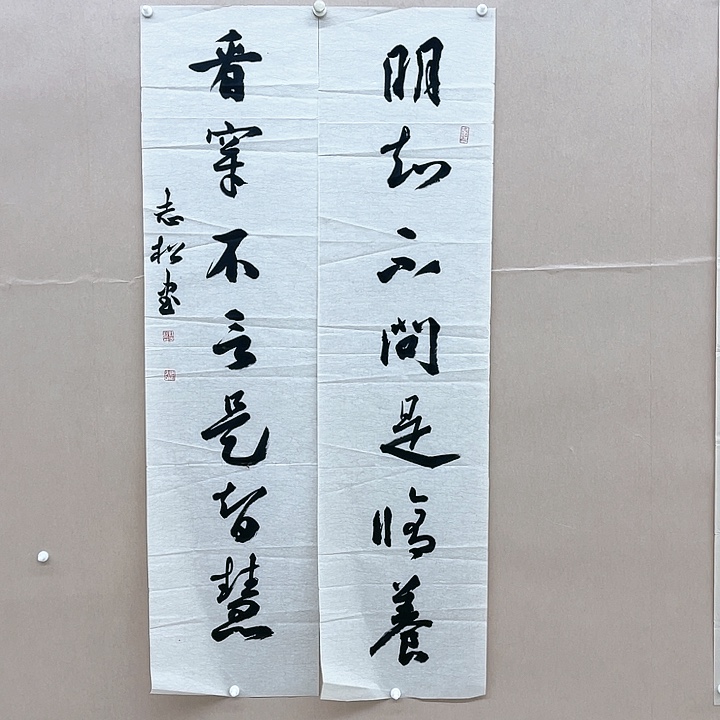 明知不問是修養
看穿不言是智慧
志松書